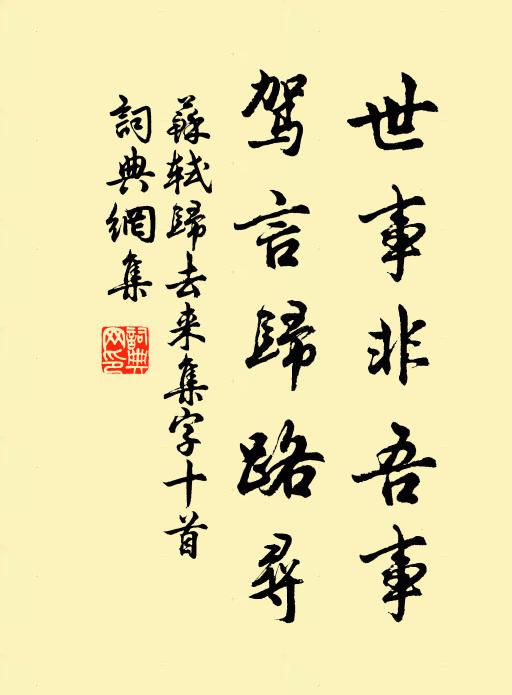 世事非吾事
驾言歸路尋
蘇軾歸去来集字十首
詞典網集
詞典
网印